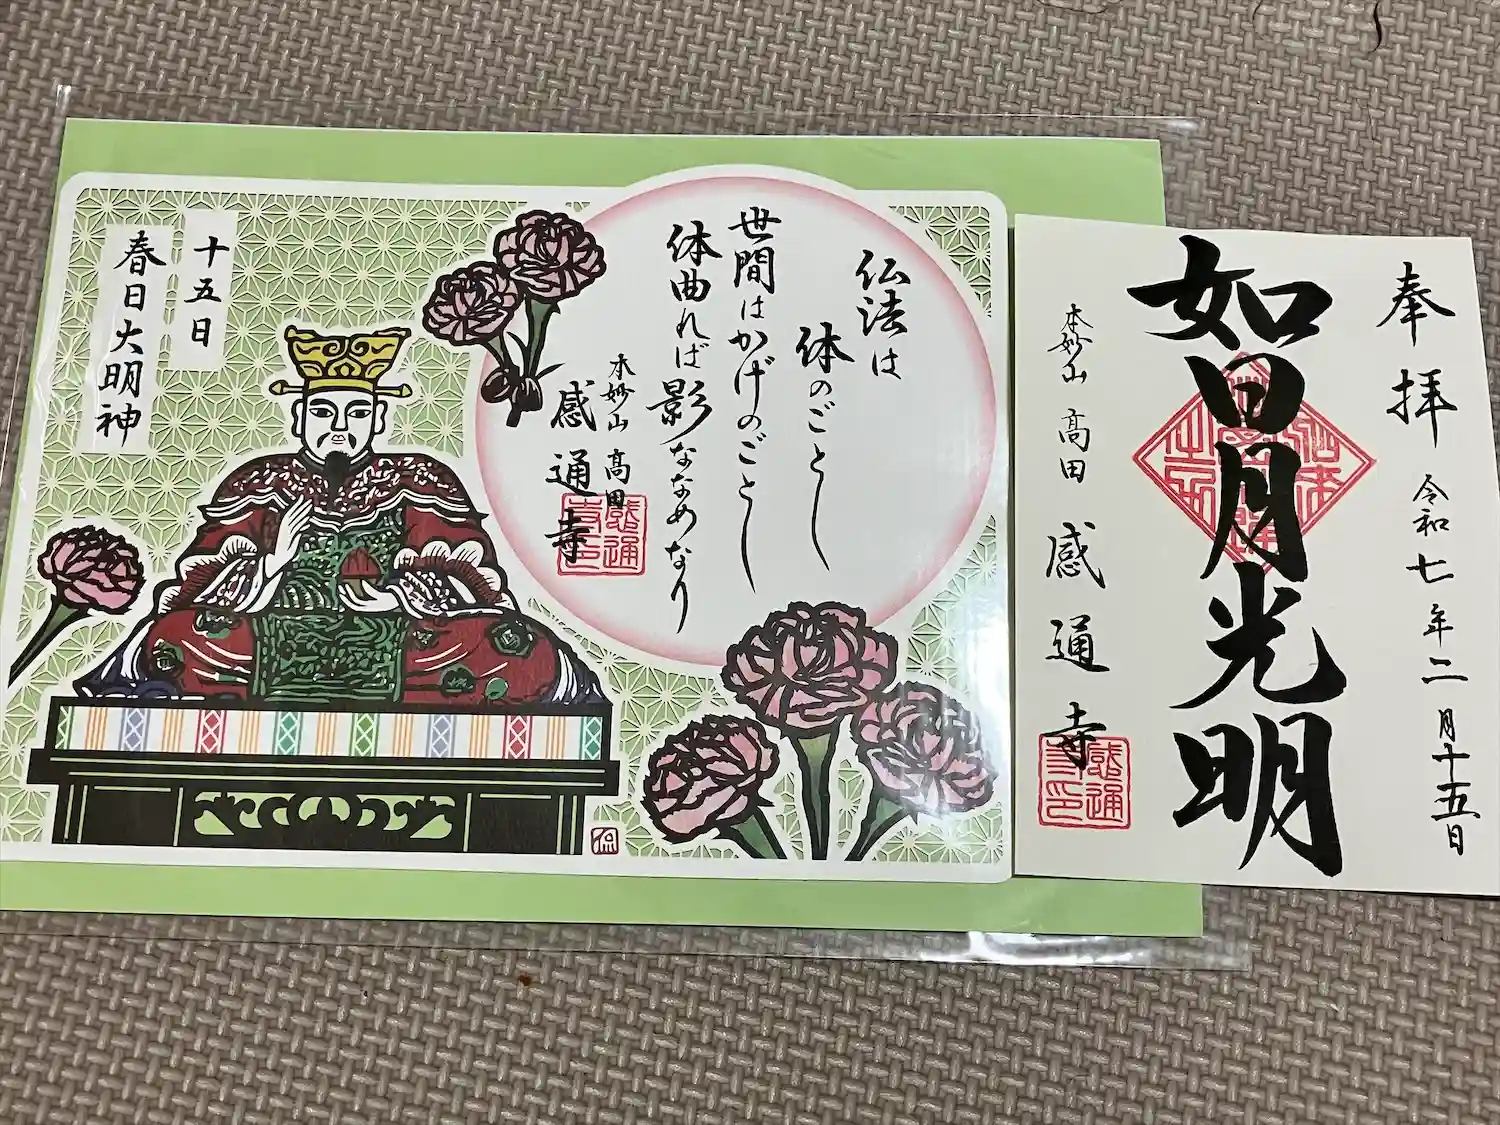 十五日
春日大明神
仏法は
体のごとし
世間はかげのごとし
体曲れば影ななめなり
本妙山 高田
感通寺
奉拝 令和七年二月十五日
如日月光明
本妙山 高田 感通寺